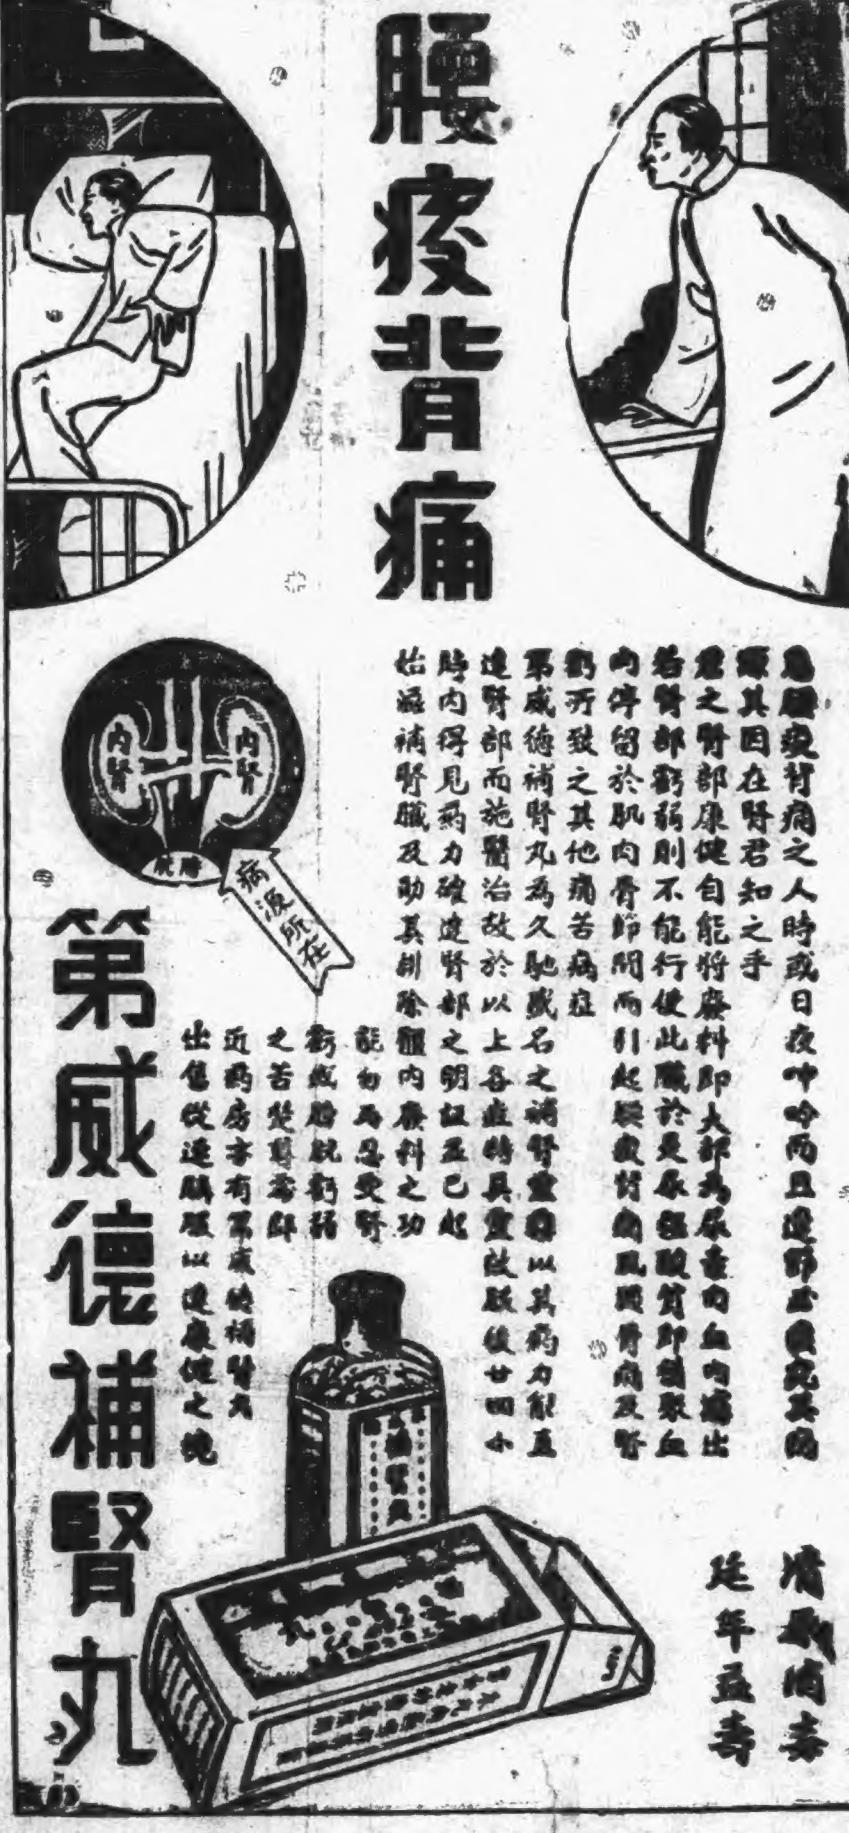 腰痠背痛
患腰痠背痛之人時或日夜呻吟而且遷
源其因在腎君知之乎
君之腎部康健自能將廢料即大部為尿毒由血內濾出
若腎部虧弱則不能行使此職於是尿毒酸質即積聚血
內停留於肌肉骨節間而引起腰痠背痛風濕骨痛及腎
虧所致之其他痛苦病症
第威德補腎丸為久馳盛名之補腎靈藥以其藥力能直
達腎部而施醫治故於以上各症特具靈效服後廿四小
時內得見藥力確達腎部之明証並已起
始滋補腎臟及助其排除體內廢料之功
能勿再忍受腎
虧或膀胱虧弱
之苦楚尊處鄰
近藥房亦有第威德補腎丸
出售從速購服以達康健之境
內腎
內腎
膀胱
病源所在
第威德補腎丸
補腎丸
清血消毒
延年益壽